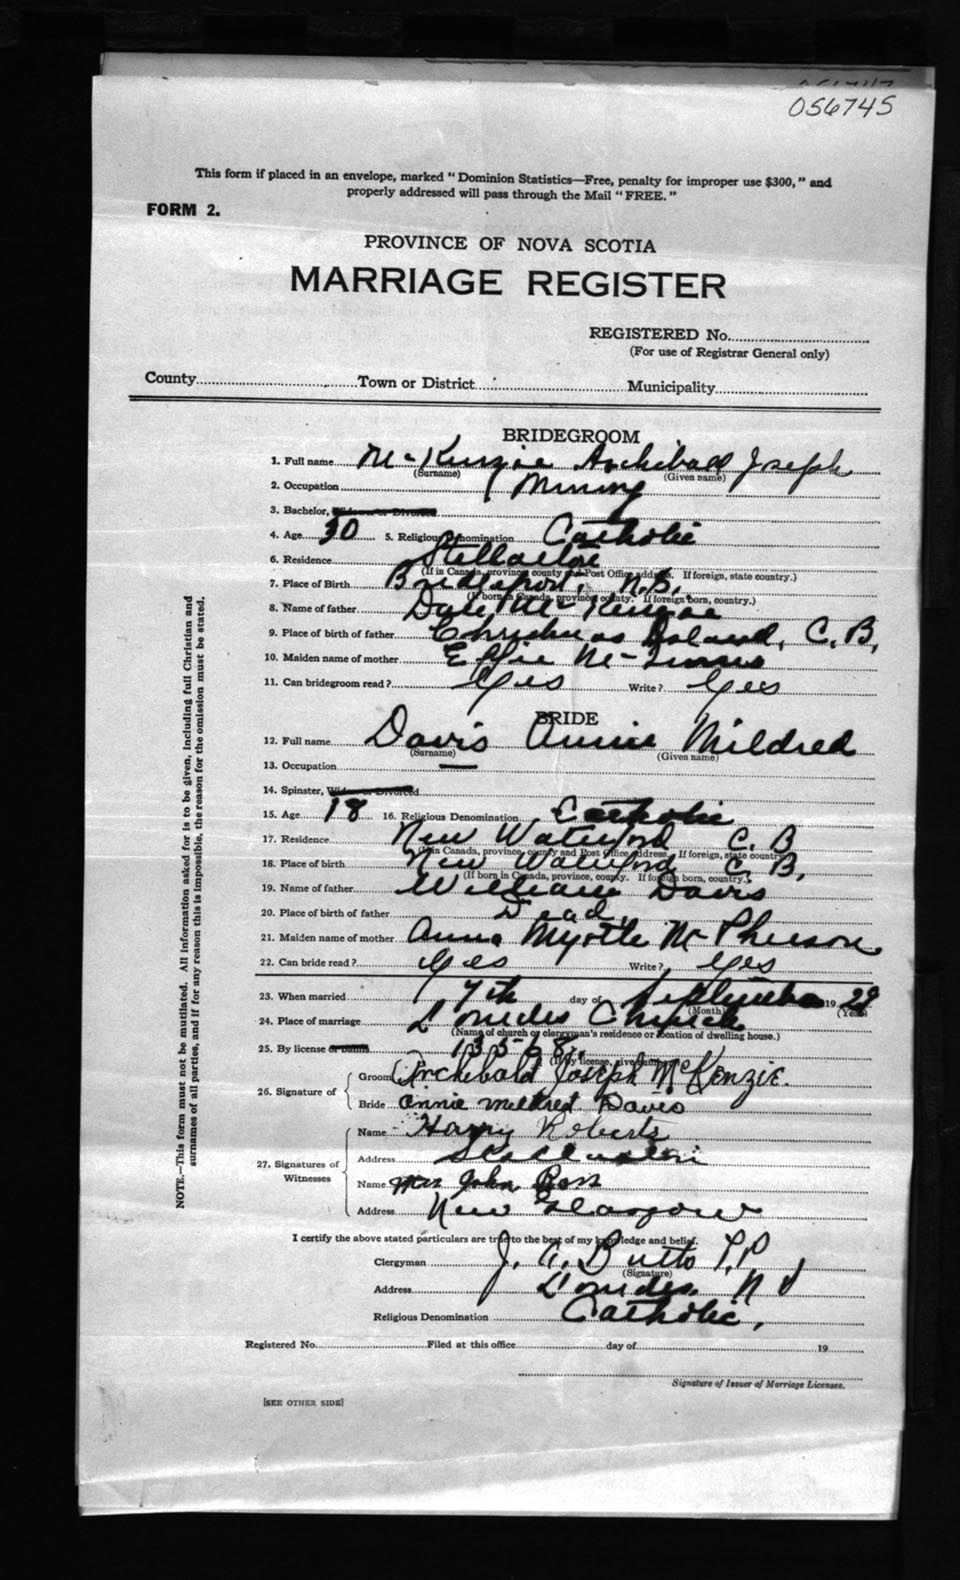 056745
This form if placed in an envelope, marked "Dominion Statistics—Free, penalty for improper use $300," and
properly addressed will pass through the Mail "FREE."
FORM 2.
PROVINCE OF NOVA SCOTIA
MARRIAGE REGISTER
REGISTERED No.
(For use of Registrar General only)
County Town or District Municipality
BRIDEGROOM
1. Full name McKenzie Archibald Joseph
(Surname) (Given name)
2. Occupation Mining
3. Bachelor, Widower or Divorced
4. Age 30 5. Religious Denomination Catholic
6. Residence Stellarton
(If in Canada, province, county and Post Office address. If foreign, state country.)
7. Place of Birth Bridgeport, N.B.
(If born in Canada, province, county. If foreign born, country.)
8. Name of father McKenzie
9. Place of birth of father Christmas Island, C.B,
10. Maiden name of mother Effie McInnis
11. Can bridegroom read? Yes Write? Yes
BRIDE
12. Full name Davis Annie Mildred
(Surname) (Given name)
13. Occupation —
14. Spinster, Widow or Divorced
15. Age 18 16. Religious Denomination Catholic
17. Residence New Waterford C. B
(If in Canada, province, county and Post Office address. If foreign, state country.)
18. Place of birth New Waterford C. B,
(If born in Canada, province, county. If foreign born, country.)
19. Name of father William Davis
20. Place of birth of father Dead
21. Maiden name of mother Anna Myrtle McPherson
22. Can bride read? Yes Write? Yes
23. When married 7th day of September 19 29
(Month) (Year)
24. Place of marriage Lourdes Church
(Name of church or clergyman's residence or location of dwelling house.)
25. By license or banns 13568.
(If by license, give number)
26. Signature of
Groom Archibald Joseph McKenzie.
Bride Annie Mildred Davis
27. Signatures of Witnesses
Name Harry Roberts
Address Stellarton
Name Mrs John Ross
Address New Glasgow
I certify the above stated particulars are true to the best of my knowledge and belief.
Clergyman J. A. Butts P.P
(Signature)
Address Lourdes. N S
Religious Denomination Catholic,
Registered No. Filed at this office day of 19
Signature of Issuer of Marriage Licenses.
[SEE OTHER SIDE]
NOTE.—This form must not be mutilated. All information asked for is to be given, including full Christian and
surnames of all parties, and if for any reason this is impossible, the reason for the omission must be stated.